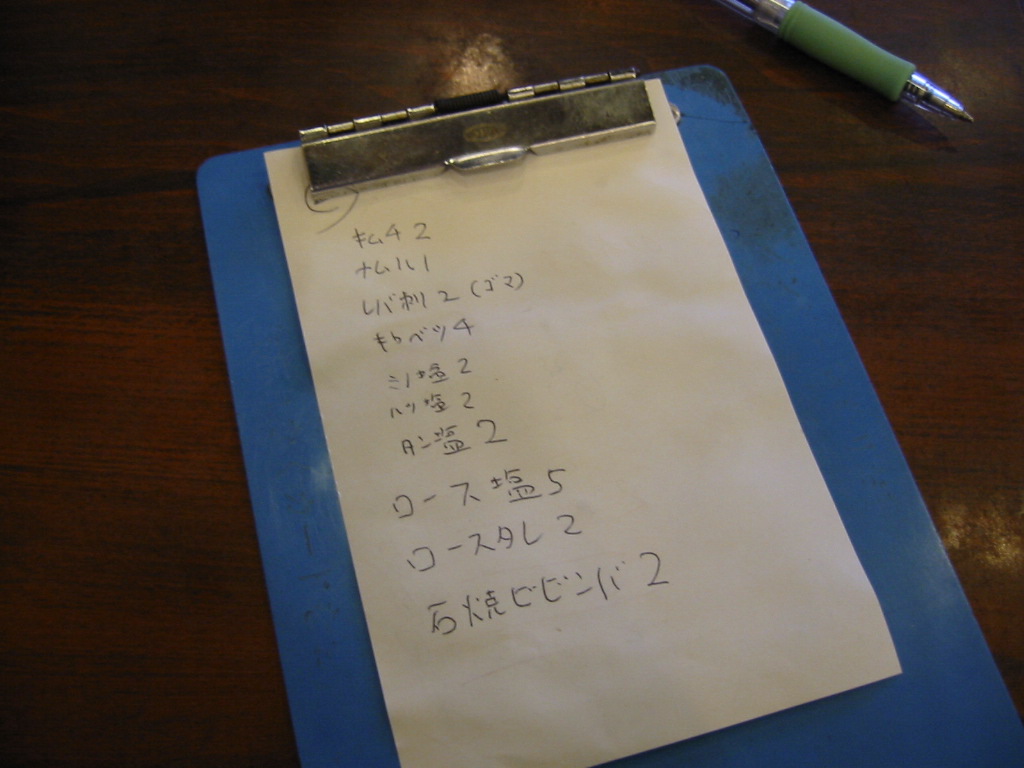 キムチ 2
ナムル 1
レバ刺し 2 (ゴマ)
キャベツ 4
ミノ塩 2
ハツ塩 2
タン塩 2
ロース塩 5
ロースタレ 2
石焼ビビンバ 2